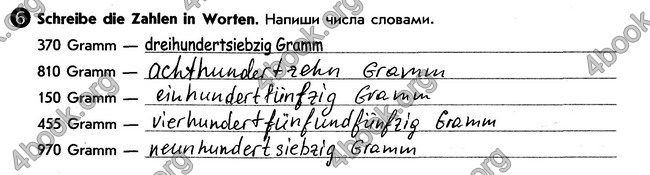 6 Schreibe die Zahlen in Worten. Напиши числа словами.
370 Gramm — dreihundertsiebzig Gramm
810 Gramm — achthundertzehn Gramm
150 Gramm — einhundertfünfzig Gramm
455 Gramm — vierhundertfünfundfünfzig Gramm
970 Gramm — neunhundertsiebzig Gramm
4book.org
4book.org
4book.org
4book.org
4book.org
4book.org